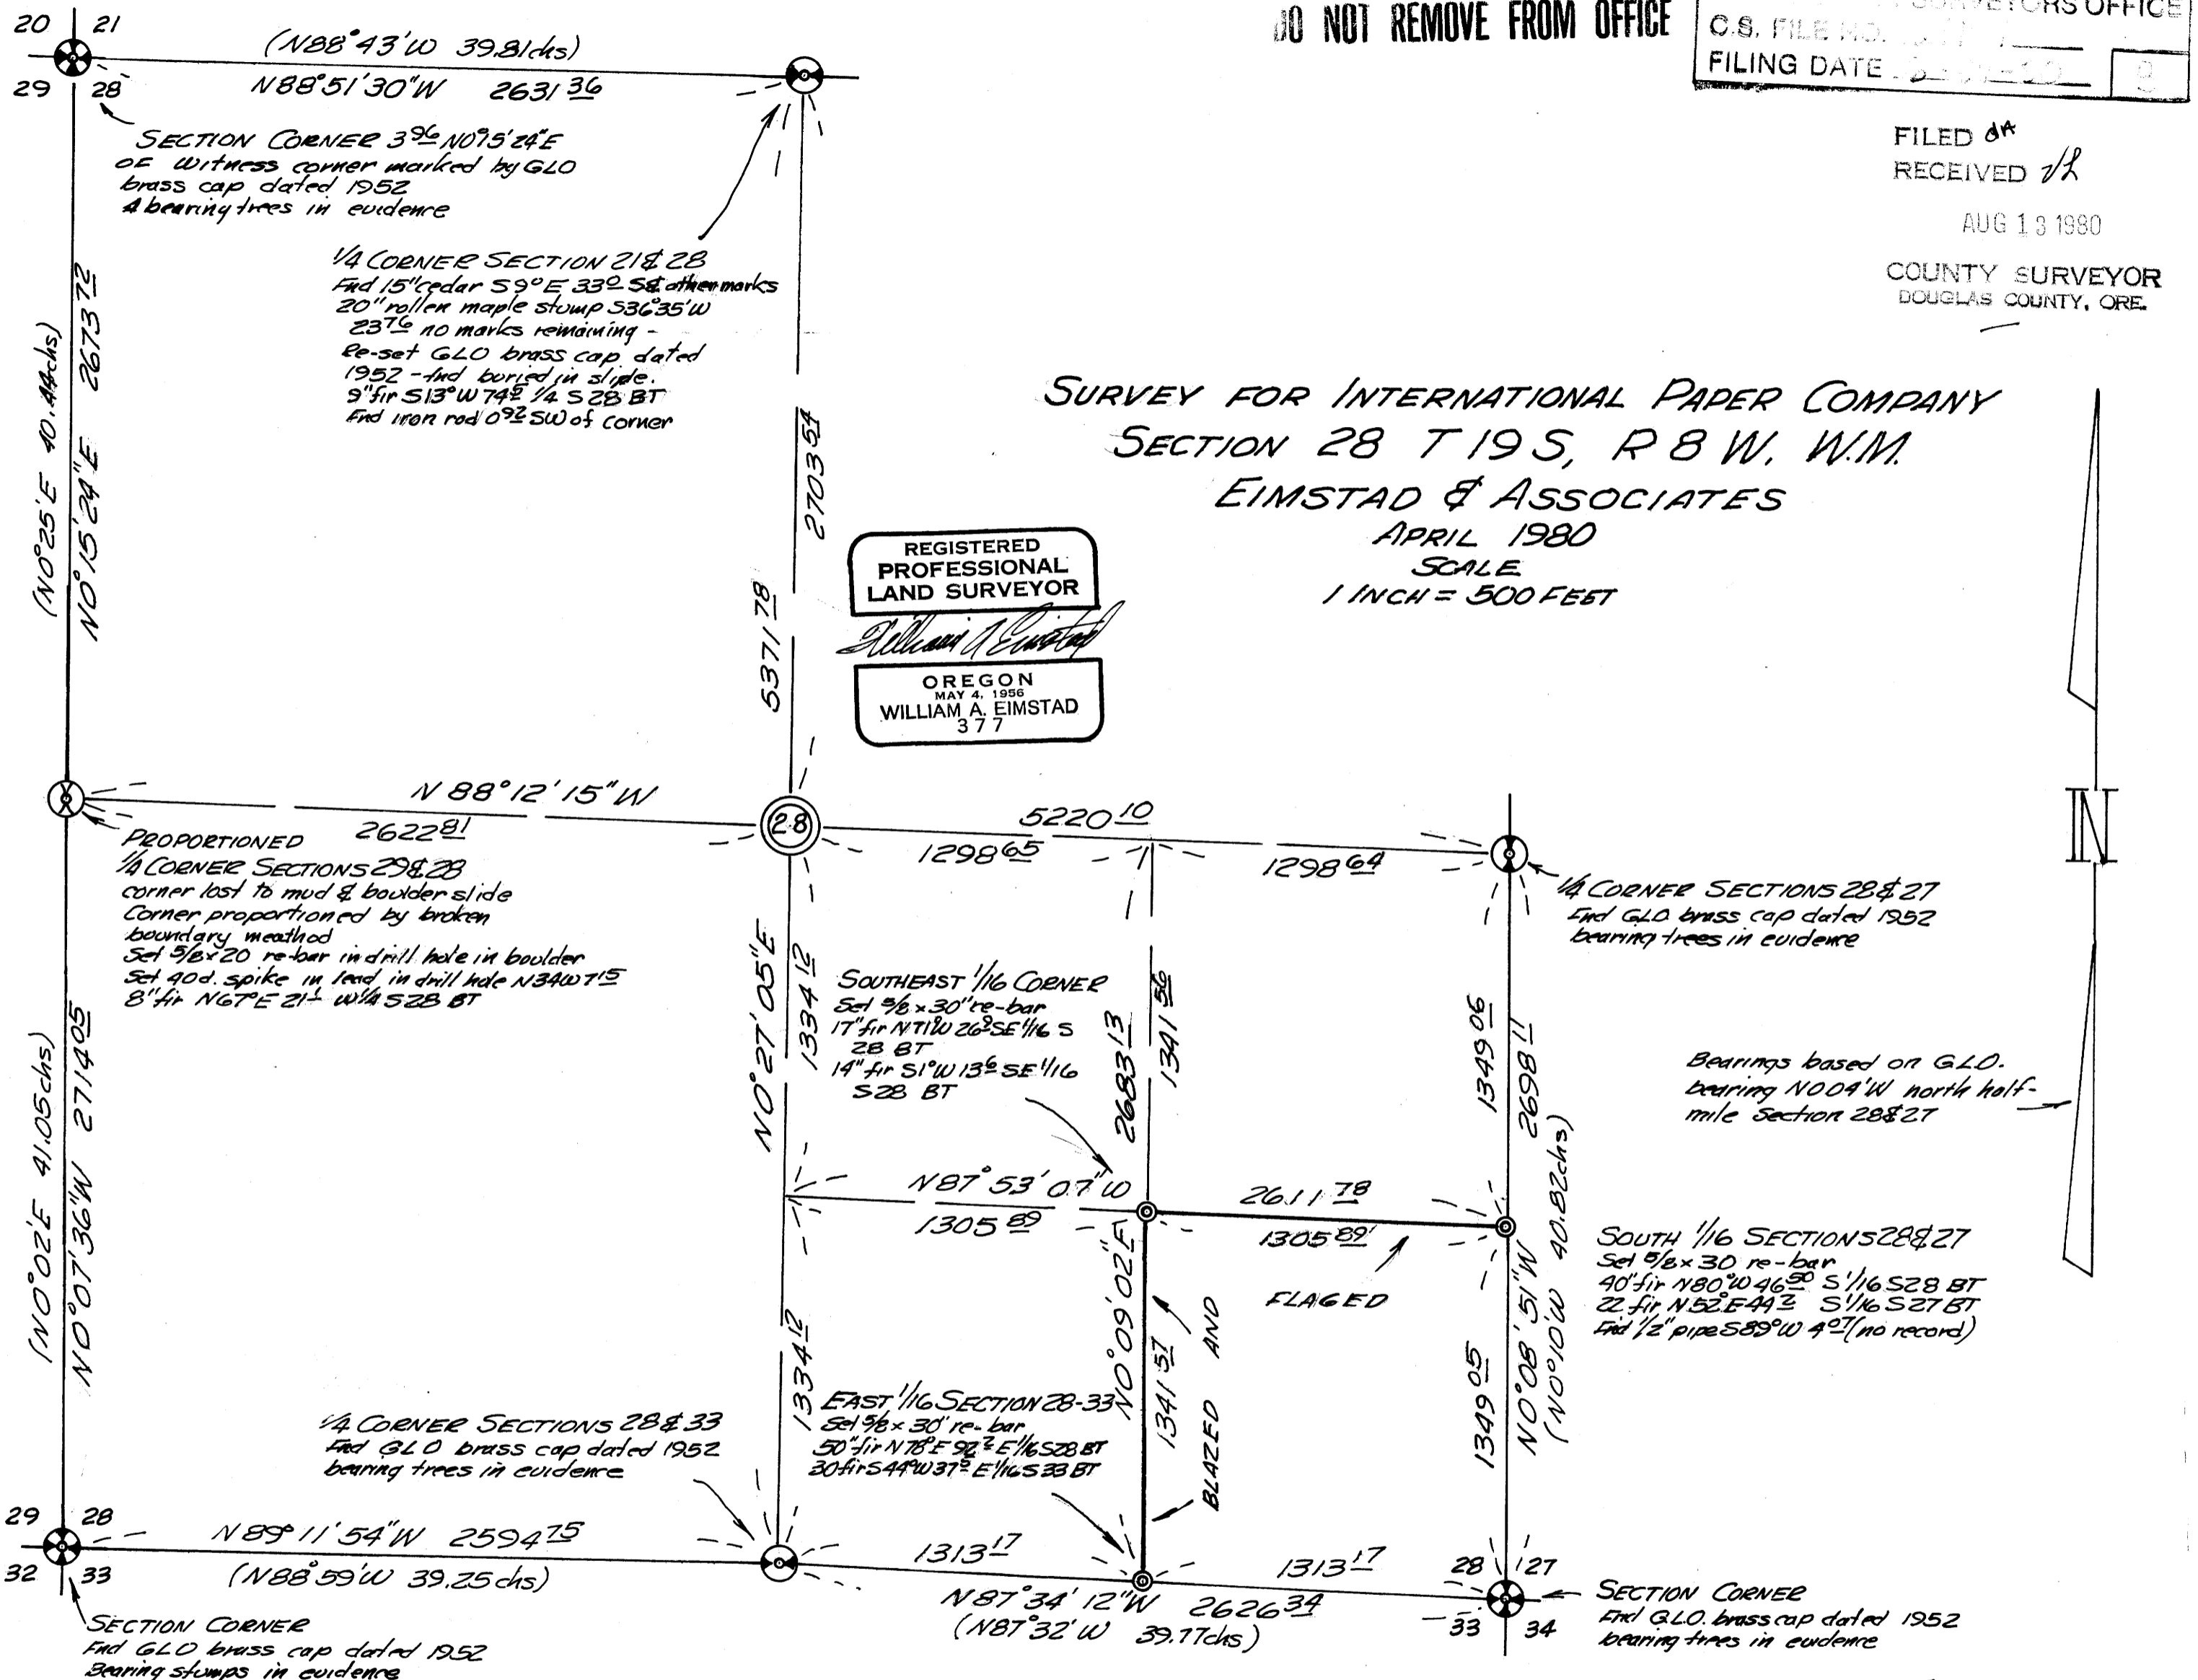 DO NOT REMOVE FROM OFFICE
SURVEYORS OFFICE
C.S. FILE NO.
FILING DATE
FILED
RECEIVED
AUG 13 1980
COUNTY SURVEYOR
DOUGLAS COUNTY, ORE.
20 21
29 28
(N88°43'W 39.81chs)
N88°51'30"W 2631 36
SECTION CORNER 3 96 N0°15'24"E
OF witness corner marked by GLO
brass cap dated 1952
4 bearing trees in evidence
1/4 CORNER SECTION 21 & 28
Fnd 15" cedar S9°E 33 0 S& other marks
20" rotten maple stump S36°35'W
23 76 no marks remaining -
Re-set GLO brass cap dated
1952 - fnd buried in slide.
9" fir S13°W 74 2 1/4 S28 BT
Fnd iron rod 0 92 SW of corner
(N0°25'E 40.44chs)
N0°15'24"E 2673 72
2703 54
5371 78
SURVEY FOR INTERNATIONAL PAPER COMPANY
SECTION 28 T 19 S, R 8 W, W.M.
EIMSTAD & ASSOCIATES
APRIL 1980
SCALE
1 INCH = 500 FEET
REGISTERED
PROFESSIONAL
LAND SURVEYOR
William A Eimstad
OREGON
MAY 4, 1956
WILLIAM A. EIMSTAD
377
N
N 88°12'15"W
2622 81
28
5220 10
1298 65
1298 64
PROPORTIONED
1/4 CORNER SECTIONS 29 & 28
corner lost to mud & boulder slide
Corner proportioned by broken
boundary meathod
Set 5/8 x 20 re-bar in drill hole in boulder
Set 40d. spike in lead in drill hole N34W 7 15
8" fir N67°E 21 1 W1/4 S28 BT
1/4 CORNER SECTIONS 28 & 27
Fnd GLO brass cap dated 1952
bearing trees in evidence
N0°27'05"E
1334 12
SOUTHEAST 1/16 CORNER
Set 5/8 x 30" re-bar
17" fir N71°W 26 9 SE 1/16 S
28 BT
14" fir S1°W 13 6 SE 1/16
S28 BT
2683 13
1341 56
1349 06
2698 11
Bearings based on GLO.
bearing N004'W north half-
mile Section 28 & 27
(N0°02'E 41.05chs)
N0°07'36"W 2714 05
N87°53'07"W
1305 89
2611 78
1305 89'
FLAGED
SOUTH 1/16 SECTIONS 28 & 27
Set 5/8 x 30 re-bar
40" fir N80°W 46 50 S 1/16 S28 BT
22 fir N52°E 44 2 S 1/16 S27 BT
Fnd 1/2" pipe S89°W 4 07 (no record)
N0°09'02"E
1341 57
BLAZED AND
1334 12
1349 05
N0°08'51"W
(N0°10'W 40.82chs)
1/4 CORNER SECTIONS 28 & 33
Fnd GLO brass cap dated 1952
bearing trees in evidence
EAST 1/16 SECTION 28-33
Set 5/8 x 30' re-bar
50" fir N78°E 92 2 E 1/16 S28 BT
30 fir S44°W 37 2 E 1/16 S33 BT
29 28
32 33
N89°11'54"W 2594 75
(N88°59'W 39.25chs)
1313 17
1313 17
N87°34'12"W 2626 34
(N87°32'W 39.77chs)
28 27
33 34
SECTION CORNER
Fnd GLO brass cap dated 1952
Bearing stumps in evidence
SECTION CORNER
Fnd GLO. brass cap dated 1952
bearing trees in evidence